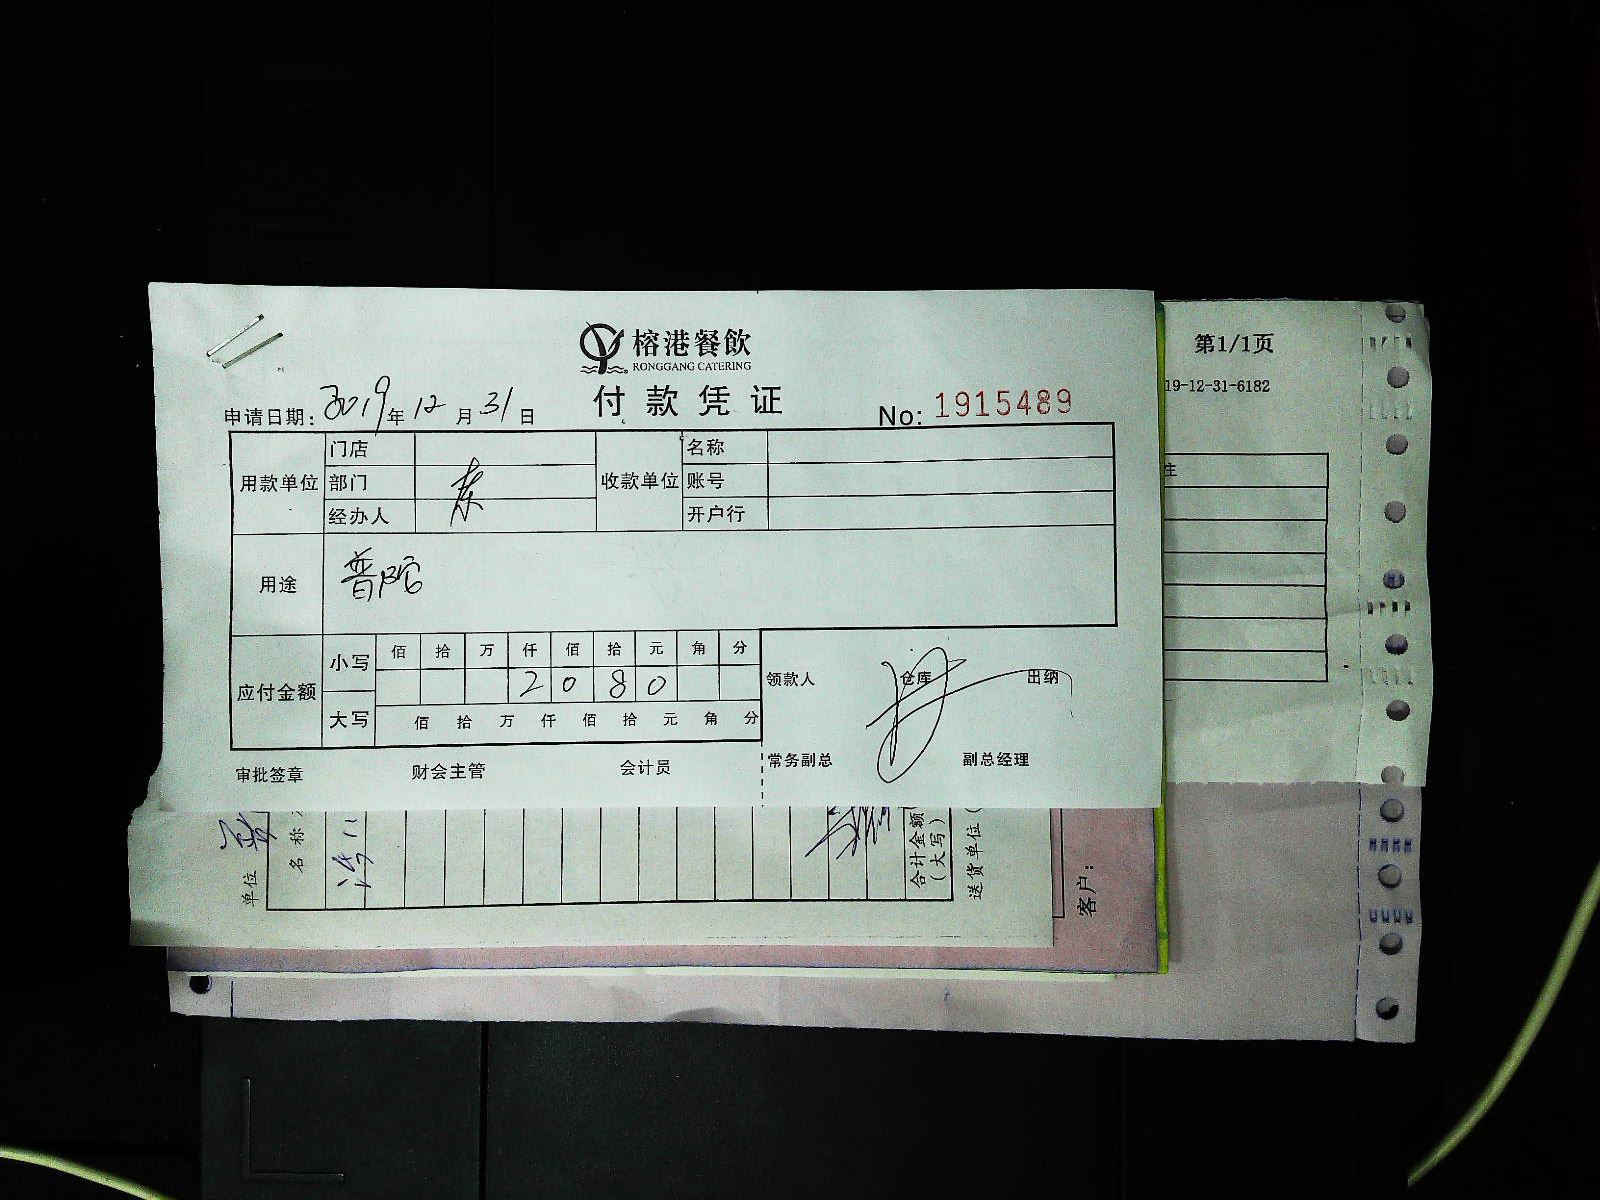 榕港餐飲
RONGGANG CATERING
第1/1页
19-12-31-6182
付款凭证
申请日期: 2019年12月31日
No: 1915489
用款单位 门店 收款单位 名称
部门 账号
经办人 开户行
主
用途 普陀
应付金额 小写 佰 拾 万 仟 佰 拾 元 角 分
2 0 8 0
大写 佰 拾 万 仟 佰 拾 元 角 分
领款人 仓库 出纳
常务副总 副总经理
审批签章 财会主管 会计员
单位
名称
合计金额
(大写)
送货单位(
客户: